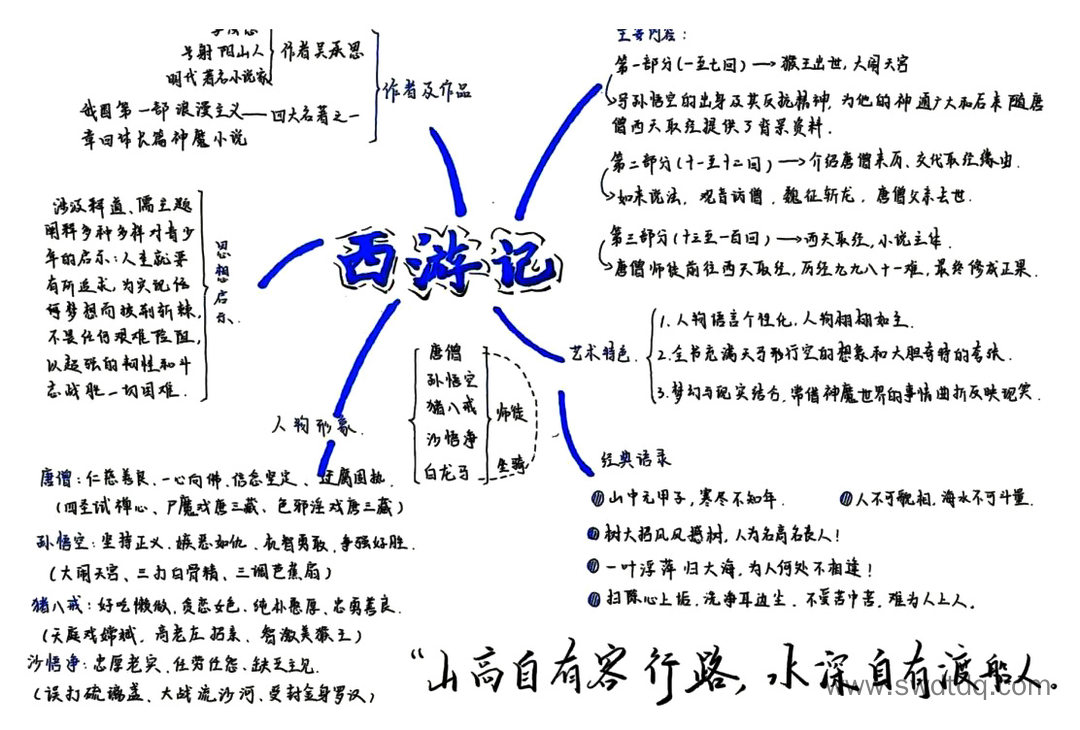 号射阳山人
明代著名小说家
作者吴承恩
我国第一部浪漫主义
章回体长篇神魔小说
四大名著之一
作者及作品
主要内容：
第一部分(一至七回)→猴王出世,大闹天宫
导孙悟空的出身及其反抗精神，为他的神通广大和后来随唐
僧西天取经提供了背景资料.
第二部分(十一至十二回)→介绍唐僧来历、交代取经缘由.
如来说法，观音访僧，魏征斩龙，唐僧父亲去世.
第三部分(十三至一百回)→西天取经,小说主体.
唐僧师徒前往西天取经,历经九九八十一难，最终修成正果.
西游记
涉及释道、儒主题
阐释多种多样对青少
年的启示:人生就要
有所追求,为实现悟
得梦想而披荆斩棘,
不畏任何艰难险阻,
以超强的韧性和斗
志战胜一切困难.
思想启示.
艺术特色.
1.人物语言个性化,人物栩栩如生.
2.全书充满天马行空的想象和大胆奇特的夸张.
3.梦幻与现实结合,常借神魔世界的事情曲折反映现实.
唐僧
孙悟空
猪八戒
沙悟净
白龙马
师徒
坐骑
人物形象.
唐僧:仁慈善良、一心向佛、信念坚定、迂腐固执.
(四圣试禅心、尸魔戏唐三藏、色邪淫戏唐三藏)
孙悟空:坚持正义、嫉恶如仇、机智勇敢、争强好胜.
(大闹天宫、三打白骨精、三调芭蕉扇)
猪八戒:好吃懒做,贪恋女色、纯朴憨厚、忠勇善良.
(天庭戏嫦娥,高老庄招亲、智激美猴王)
沙悟净:忠厚老实、任劳任怨、缺乏主见.
(误打琉璃盏、大战流沙河、受封金身罗汉)
经典语录
山中无甲子，寒尽不知年.
人不可貌相,海水不可斗量.
树大招风风撼树,人为名高名丧人!
一叶浮萍归大海,为人何处不相逢!
扫除心上垢,洗净耳边尘.不受苦中苦,难为人上人.
“山高自有客行路,水深自有渡船人.
www.swdtdq.com